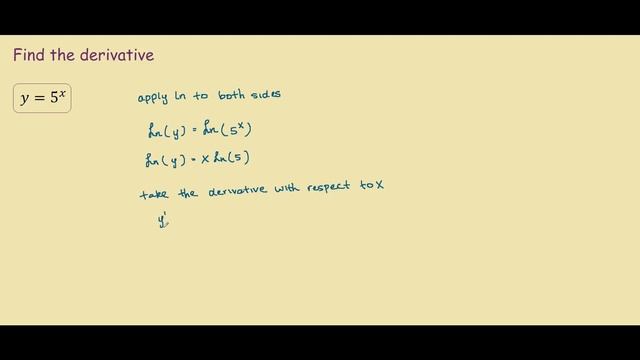 Find the derivative
y = 5ˣ
apply ln to both sides
ln(y) = ln(5ˣ)
ln(y) = x ln(5)
take the derivative with respect to x
y'